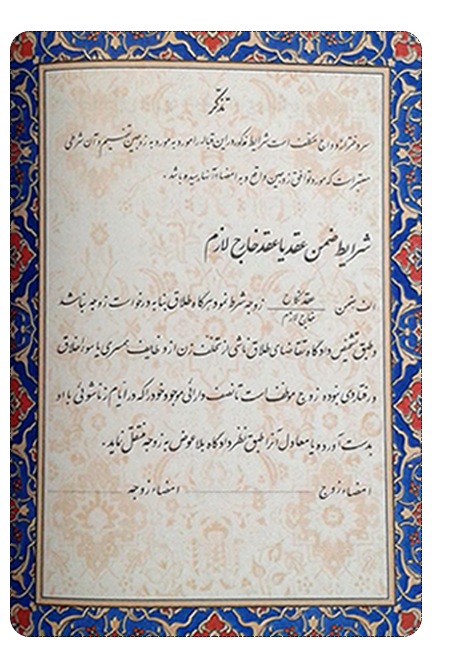 تذکر
سردفتر ازدواج مکلف است شرایط مذکور در این قباله را مورد به مورد به زوجین تفهیم و آن شرطی
معتبر است که مورد توافق زوجین واقع و به امضاء آنها رسیده باشد.
شرایط ضمن عقد یا عقد خارج لازم
الف - ضمن عقد نکاح / خارج لازم زوجه شرط نمود هرگاه طلاق بنا به درخواست زوجه نباشد
و طبق تشخیص دادگاه تقاضای طلاق ناشی از تخلف زن از وظایف همسری یا سوء اخلاق
و رفتار وی نبوده زوج موظف است تا نصف دارائی موجود خود را که در ایام زناشوئی با او
بدست آورده یا معادل آنرا طبق نظر دادگاه بلاعوض به زوجه منتقل نماید.
امضاء زوج امضاء زوجه